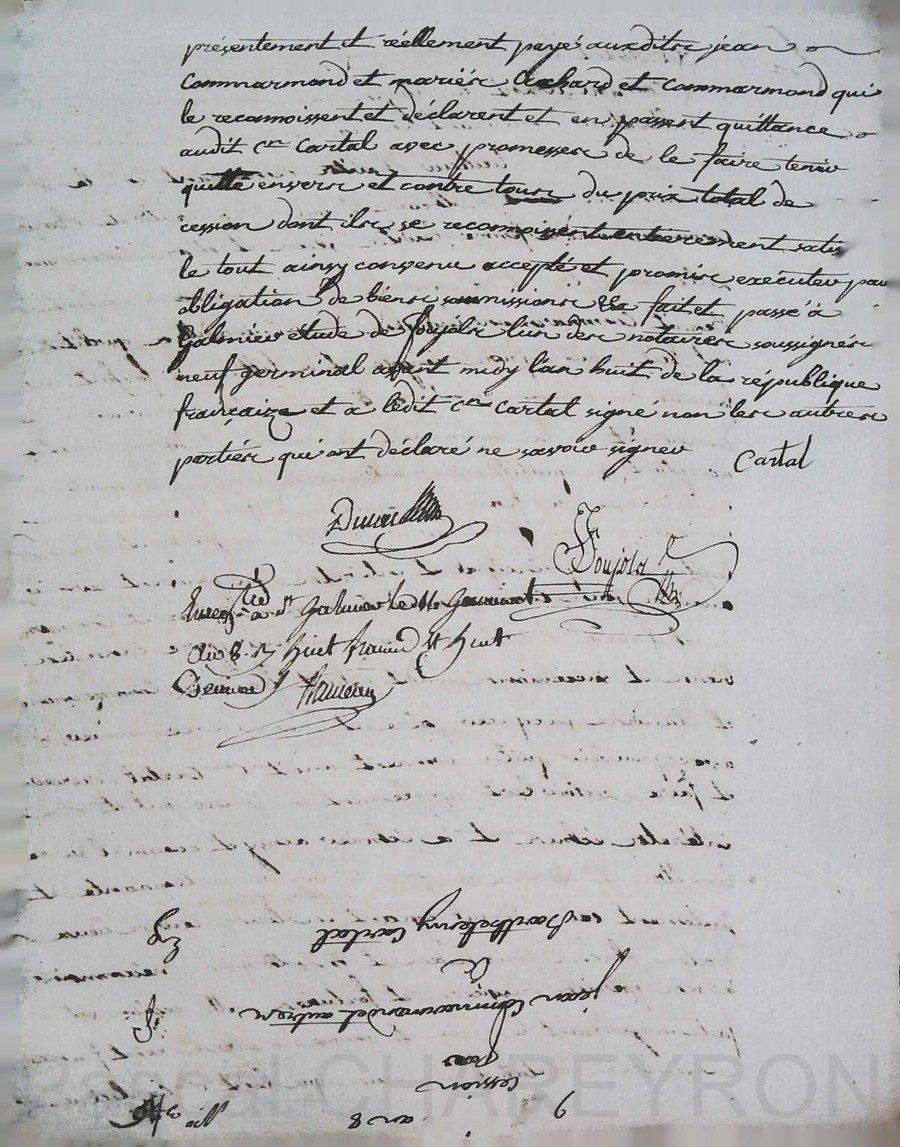 présentement et réellement payé auxdits jean
Commarmond et mariés Achard et Commarmond qui
le reconnoissent et déclarent et en passent quittance
audit cen Cartal avec promesses de le faire tenir
quitte envers et contre tous du prix total de
cession dont ils se reconnoissent entierement satis
le tout ainsy convenu accepté et promis exécuter par
obligation de biens soumissions &a fait et passé à
Galmier étude de Foujols l'un des notaires soussignés
neuf germinal avant midy l'an huit de la république
française et a ledit cen Cartal signé non les autres
parties qui ont déclaré ne savoir signer
Cartal
Foujols
Enregtré à St Galmier le
huit francs et huit
9
an 8
Cession
par
jean Commarmond et autres
a
Barthelemy Cartal
Pascal CHAREYRON